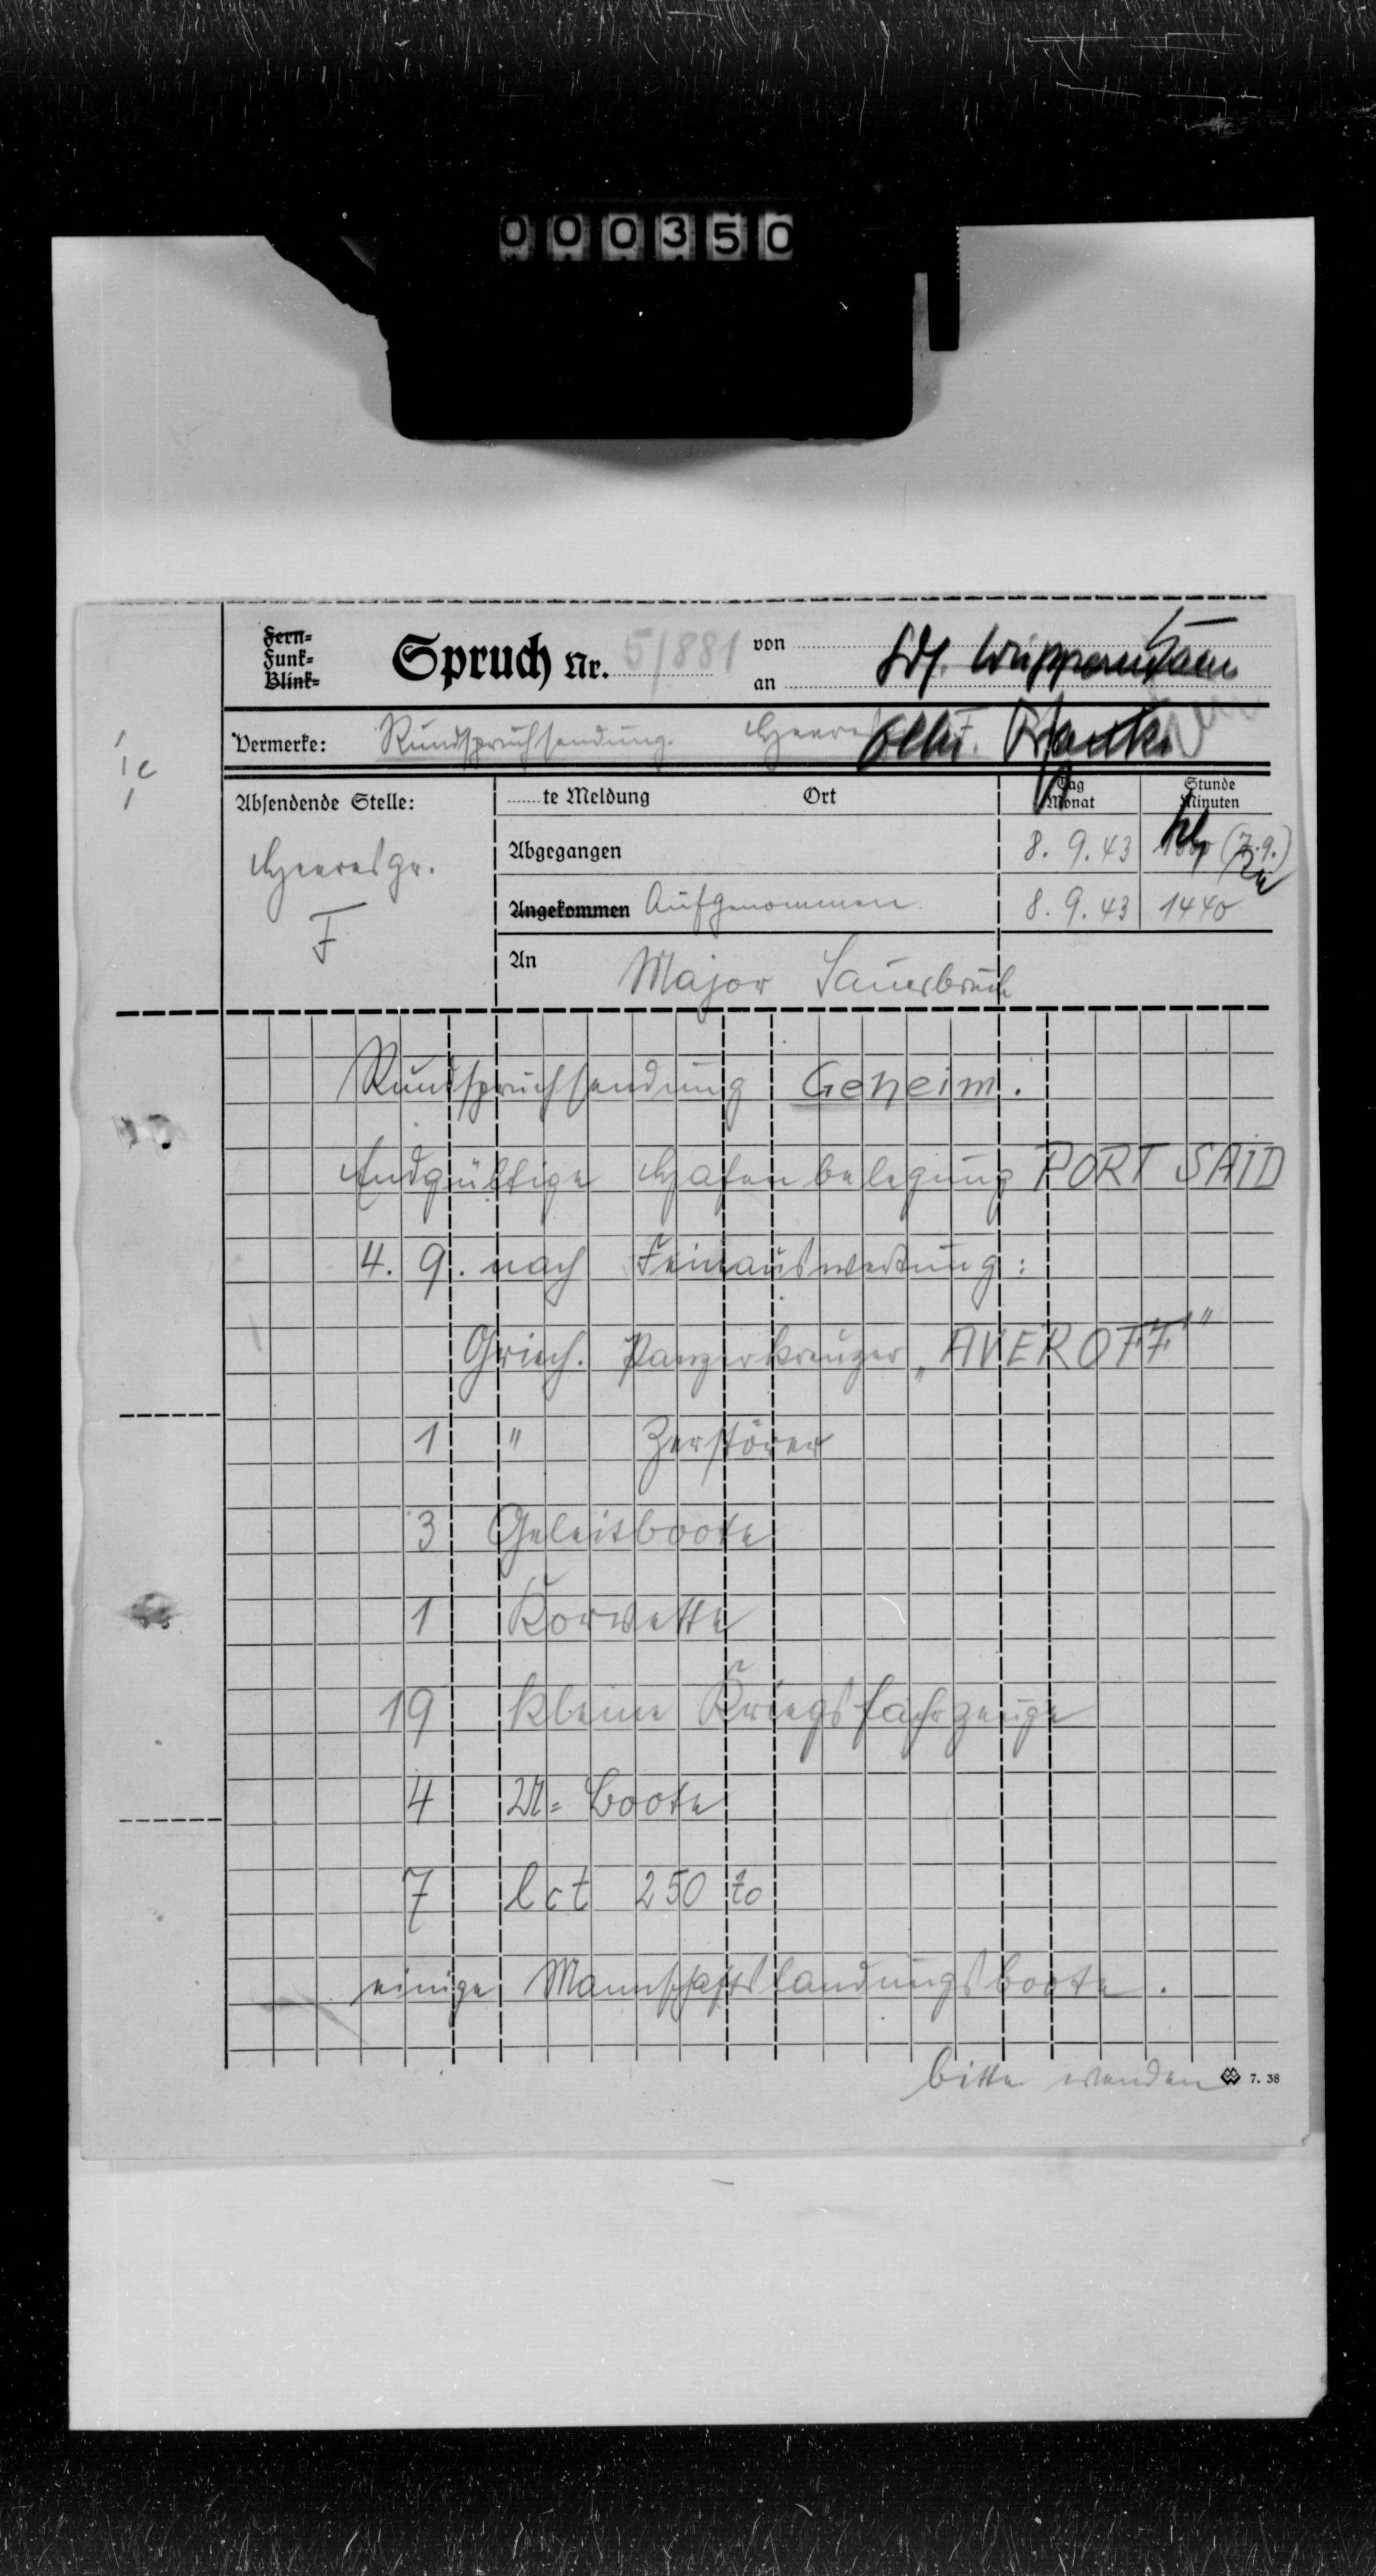 000350
Fern-
Funk-
Blink-
Spruch Nr. 51881
von
an
Vermerke: Rundspruchsendung.
Ic
Absendende Stelle:
......te Meldung Ort
Tag
Monat
Stunde
Minuten
Heeresgr.
F
Abgegangen 8. 9. 43 (7.9.)
Angekommen Aufgenommen. 8. 9. 43 1440
An Major Sauerbruch
Rundspruchsendung Geheim.
Endgültige Hafenbelegung PORT SAID
4. 9. nach Feinauswertung:
Griech. Panzerkreuzer „AVEROFF"
1 " Zerstörer
3 Geleitboote
1 Korvette
19 kleine Kriegsfahrzeuge
4 M=Boote
7 lct 250 to
einige Mannschaftslandungsboote.
bitte wenden
7. 38